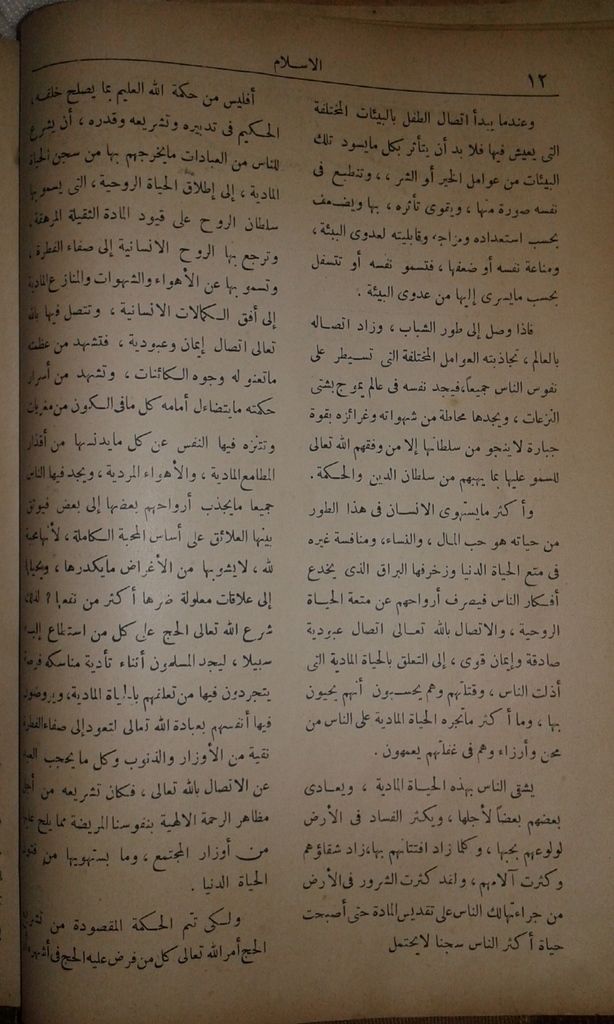 ١٢
الإسلام
وعندما يبدأ اتصال الطفل بالبيئات المختلفة
التى يعيش فيها فلا بد أن يتأثر بكل مايسود تلك
البيئات من عوامل الخير أو الشر ، وتنطبع فى
نفسه صورة منها ، ويقوى تأثره ، بها ويضعف
بحسب استعداده ومزاجه وقابليته لعدوى البيئة ،
ومناعة نفسه أو ضعفها ، فتسمو نفسه أو تتسفل
بحسب مايسرى إليها من عدوى البيئة .
فاذا وصل إلى طور الشباب ، وزاد اتصاله
بالعالم ، تجاذبته العوامل المختلفة التى تسيطر على
نفوس الناس جميعا، فيجد نفسه فى عالم يموج بشتى
النزعات ، ويجدها محاطة من شهواته وغرائزه بقوة
جبارة لاينجو من سلطانها إلا من وفقهم الله تعالى
للسمو عليها بما يهبهم من سلطان الدين والحكمة .
وأكثر مايستهوى الانسان فى هذا الطور
من حياته هو حب المال ، والنساء، ومنافسة غيره
فى متع الحياة الدنيا وزخرفها البراق الذى يخدع
أفكار الناس فيصرف أرواحهم عن متعة الحياة
الروحية ، والاتصال بالله تعالى اتصال عبودية
صادقة وإيمان قوى ، إلى التعلق بالحياة المادية التى
أذلت الناس ، وقتلتهم وهم يحسبون أنهم يحيون
بها ، وما أكثر ماتجره الحياة المادية على الناس من
محن وأرزاء وهم فى غفلتهم يعمهون .
يشقى الناس بهذه الحياة المادية ، ويعادى
بعضهم بعضاً لأجلها ، ويكثر الفساد فى الأرض
لولوعهم بحبها ، وكلما زاد افتتانهم بها،زاد شقاؤهم
وكثرت آلامهم ، ولقد كثرت الشرور فى الأرض
من جراء تهالك الناس على تقديس المادة حتى أصبحت
حياة أكثر الناس سجنا لايحتمل
أفليس من حكمة الله العليم بما يصلح خلقه ،
الحكيم فى تدبيره وتشريعه وقدره ، أن يشرع
للناس من العبادات مايخرجهم بها من سجن الحياة
المادية ، إلى إطلاق الحياة الروحية ، التى يسمو بها
سلطان الروح على قيود المادة الثقيلة المرهقة
وترجع بها الروح الانسانية إلى صفاء الفطرة ،
وتسمو بها عن الأهواء والشهوات والمنازع المادية
إلى أفق الكمالات الانسانية ، وتتصل فيها بالله
تعالى اتصال إيمان وعبودية ، فتشهد من عظمته
ماتعنو له وجوه الكائنات ، وتشهد من أسرار
حكمته مايتضاءل أمامه كل مافى الكون من مغريات
وتتنزه فيها النفس عن كل مايدنسها من أقذار
المطامع المادية ، والأهواء المردية ، ويجد فيها الناس
جميعا مايجذب أرواحهم بعضها إلى بعض فيوثق
بينها العلائق على أساس المحبة الكاملة ، لأنها محبة
لله ، لايشوبها من الأغراض مايكدرها ،
إلى علاقات معلولة ضرها أكثر من نفعها ؟ لذلك
شرع الله تعالى الحج على كل من استطاع إليه
سبيلا ، ليجد المسلمون أثناء تأدية مناسكه فرصة
يتجردون فيها من تعلقهم بالحياة المادية، ويروضون
فيها أنفسهم بعبادة الله تعالى لتعود إلى صفاء الفطرة
نقية من الأوزار والذنوب وكل ما يحجب العبد
عن الاتصال بالله تعالى ، فكان تشريعه من أجل
مظاهر الرحمة الالهية بنفوسنا المريضة مما يلح عليها
من أوزار المجتمع ، وما يستهويها من فتنة
الحياة الدنيا .
ولكى تتم الحكمة المقصودة من تشريع
الحج أمر الله تعالى كل من فرض عليه الحج فى أشهر